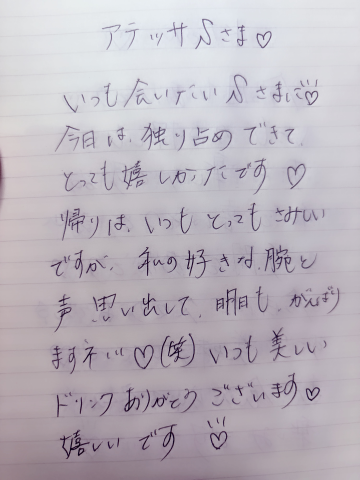 アテッサSさま♡
いつも会いたいSさまに♡
今日は、独り占めできて、
とっても嬉しかったです♡
帰りは、いつもとってもさみしい
ですが、私の好きな、腕と
声思い出して、明日も、がんばり
ますネ!!♡(笑)いつも美しい
ドリンクありがとうございます♡
嬉しいです♡